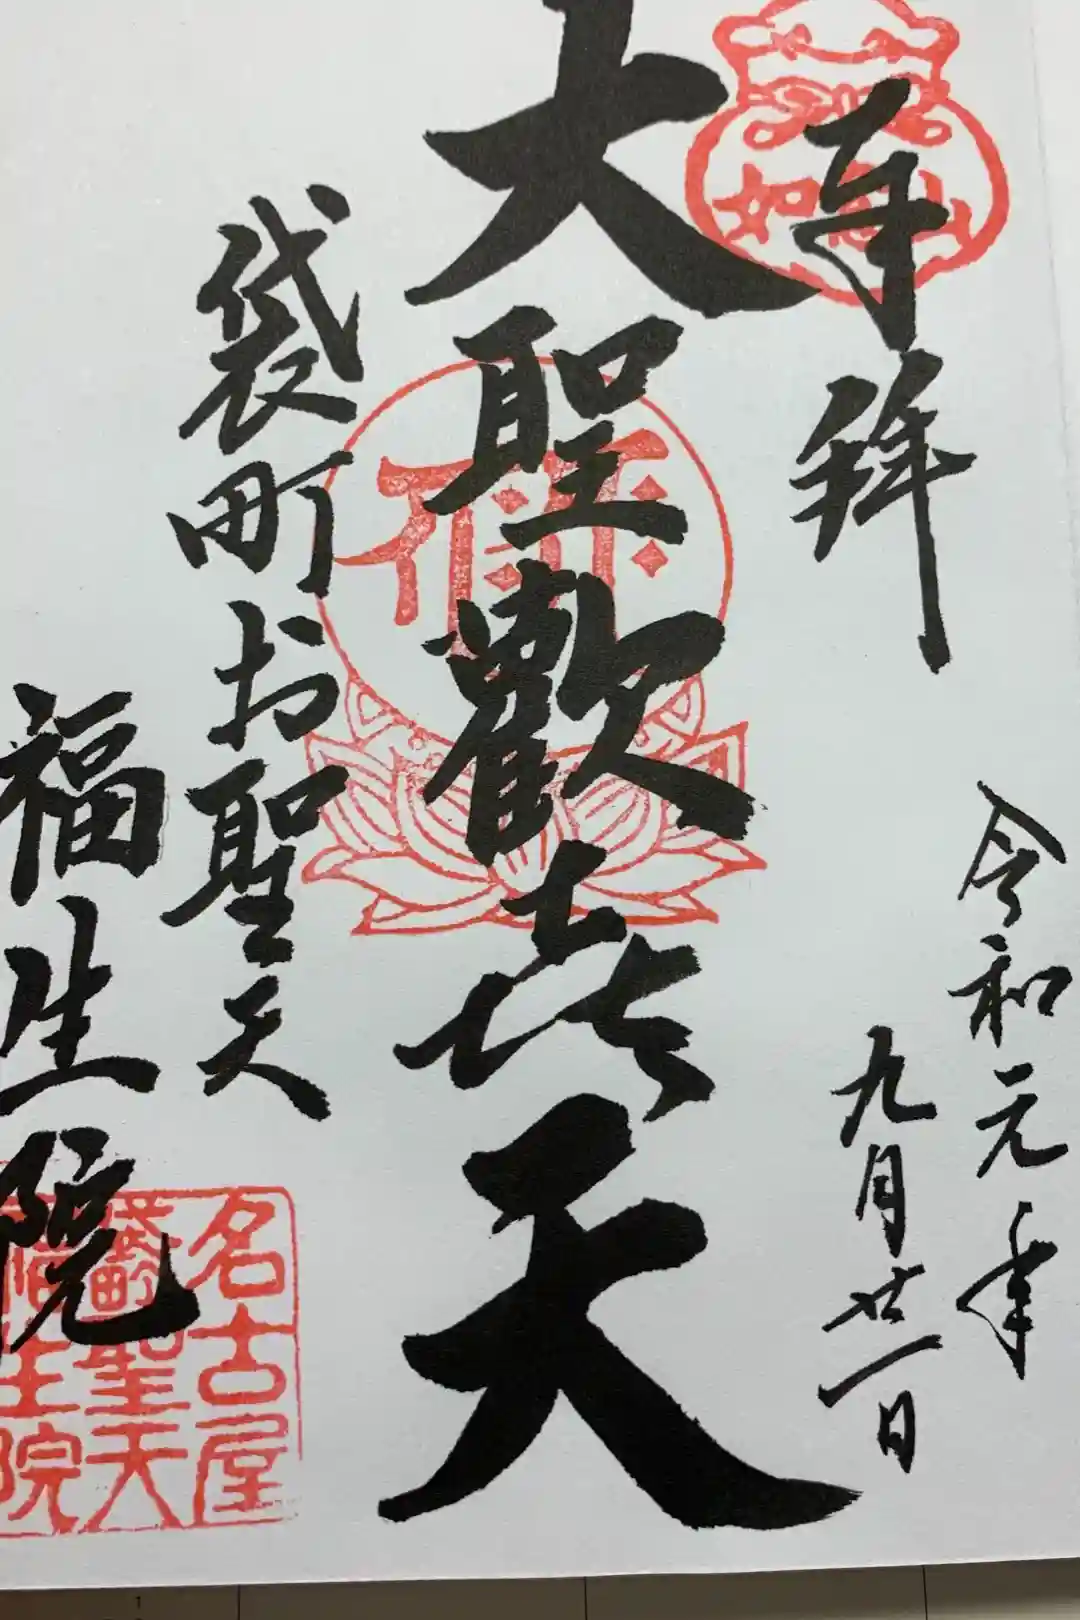 奉拝
令和元年
九月廿一日
大聖歓㐂天
袋町お聖天
福生院
如意山
名古屋
袋町聖天
福生院